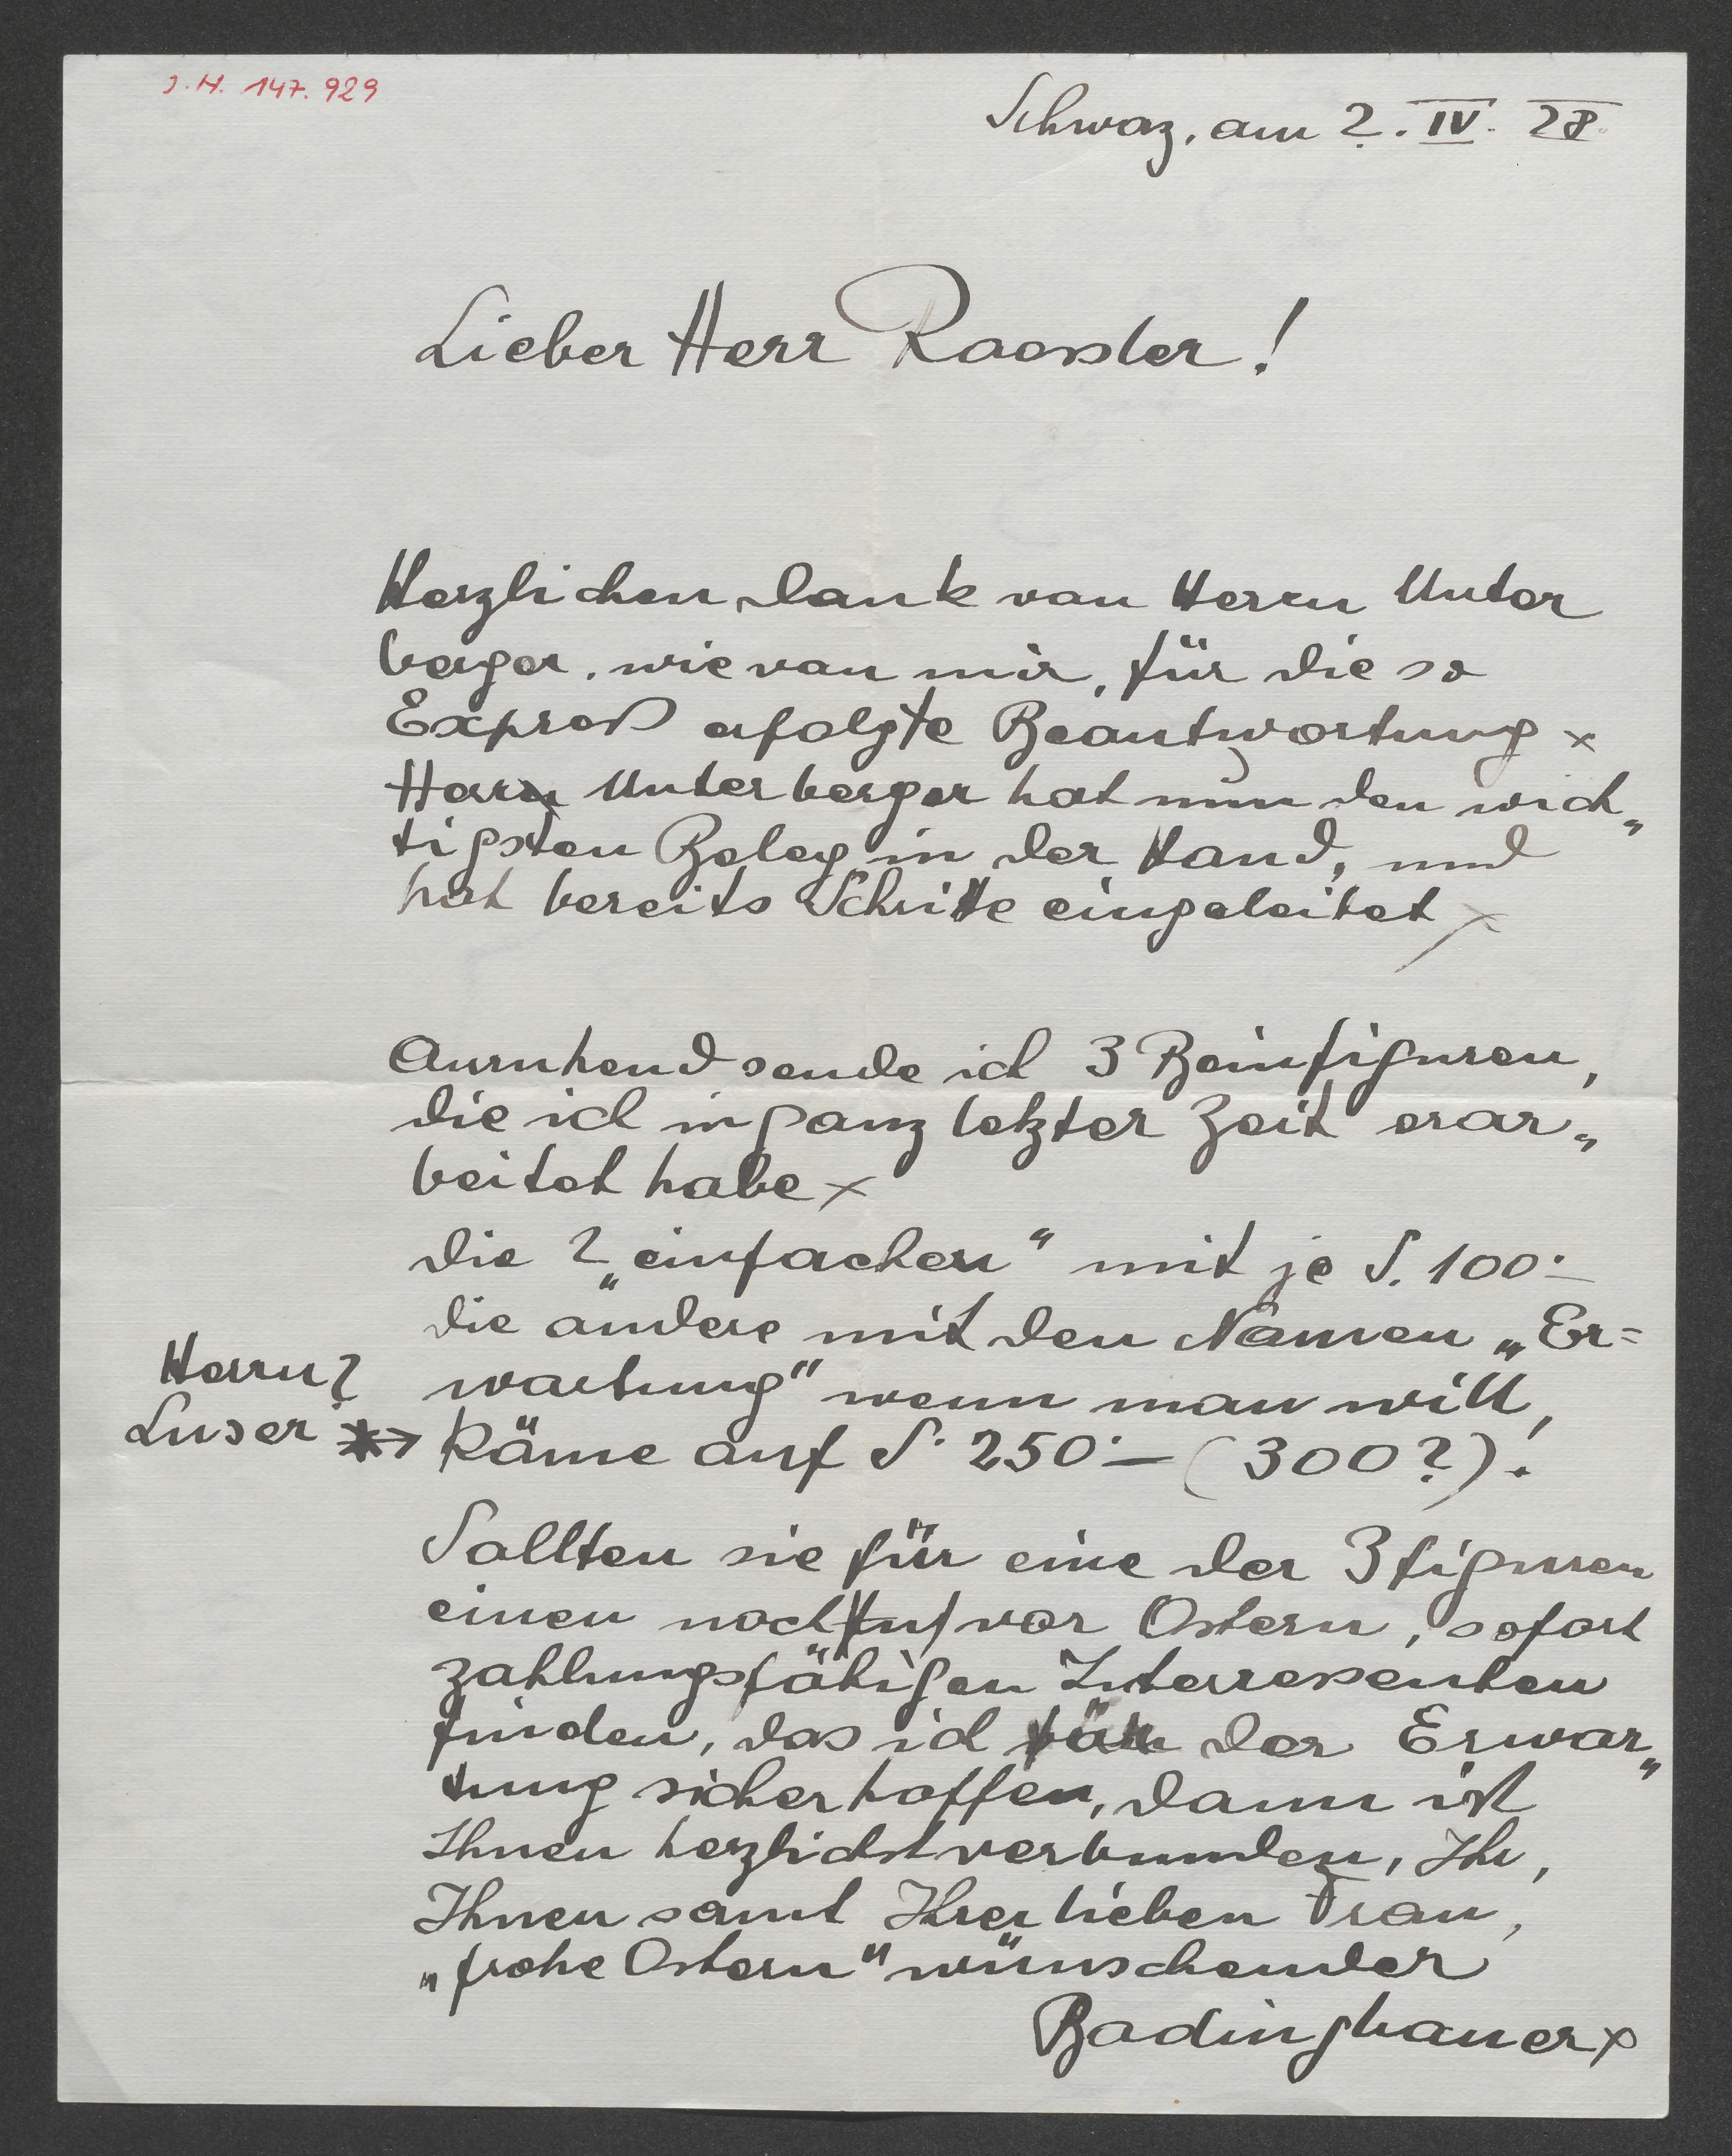 J.N. 147.929
Schwaz, am 2. IV. 28.
Lieber Herr Roessler!
Herzlichen Dank von Herrn Unter
berger, wie von mir, für die so
Expreß erfolgte Beantwortung x
Herr Unterberger hat nun den wich„
tigsten Beleg in der Hand, und
hat bereits Schritte eingeleitet x
Anruhend sende ich 3 Beinfiguren,
die ich in ganz letzter Zeit erar„
beitet habe x
die 2 „einfachen“ mit je S. 100.–
die andere mit den Namen „Er=
wartung“ wenn man will,
Herrn?
Luser * → käme auf S. 250.– (300?)!
Sollten sie für eine der 3 figuren
einen noch vor Ostern, sofort
zahlungsfähigen Interressenten
finden, das ich der Erwar„
tung sicher hoffen, dann ist
Ihnen herzlichst verbunden, Ihr,
Ihnen samt Ihrer lieben Frau,
„frohe Ostern“ wünschender
Bodingbauer x